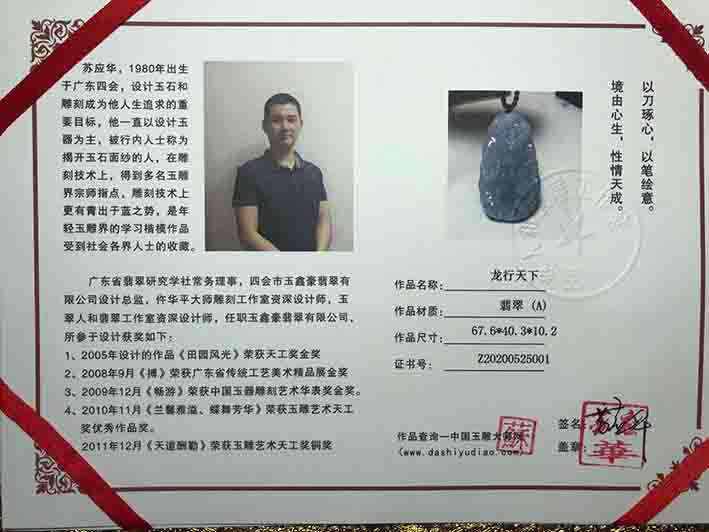 苏应华，1980年出生
于广东四会，设计玉石和
雕刻成为他人生追求的重
要目标，他一直以设计玉
器为主，被行内人士称为
揭开玉石面纱的人，在雕
刻技术上，得到多名玉雕
界宗师指点，雕刻技术上
更有青出于蓝之势，是年
轻玉雕界的学习楷模作品
受到社会各界人士的收藏。
广东省翡翠研究学社常务理事，四会市玉鑫豪翡翠有
限公司设计总监，仵华平大师雕刻工作室资深设计师，玉
翠人和翡翠工作室资深设计师，任职玉鑫豪翡翠有限公司、
所参于设计获奖如下：
1、2005年设计的作品《田园风光》荣获天工奖金奖
2、2008年9月《搏》荣获广东省传统工艺美术精品展金奖
3、2009年12月《畅游》荣获中国玉器雕刻艺术华表奖金奖。
4、2010年11月《兰馨雅溢、蝶舞芳华》荣获玉雕艺术天工
奖优秀作品奖。
2011年12月《天道酬勤》荣获玉雕艺术天工奖铜奖
以刀琢心，以笔绘意。
境由心生，性情天成。
作品名称：龙行天下
作品材质：翡翠（A）
作品尺寸：67.6*40.3*10.2
证书号：Z20200525001
作品查询—中国玉雕大师网
（www.dashiyudiao.com）
签名：
盖章：
蘇
華